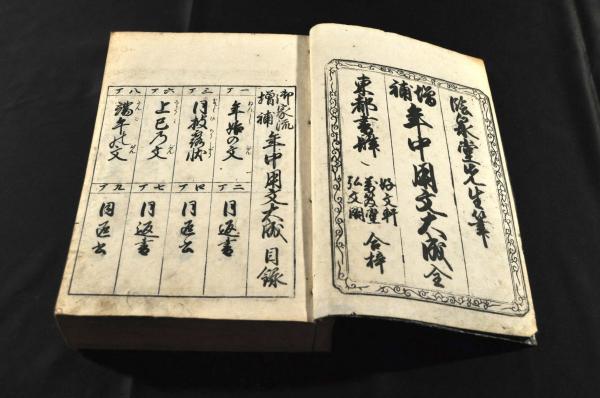 臨泉堂先生筆
増補 年中用文大成 全
東都書肆 好文軒 弘文閣 合梓
御家流 増補 年中用文大成 目録
一丁 年始の文
二丁 同返書
三丁 同披露状
四丁 同返書
六丁 上巳乃文
七丁 同返書
八丁 端午の文
九丁 同返書